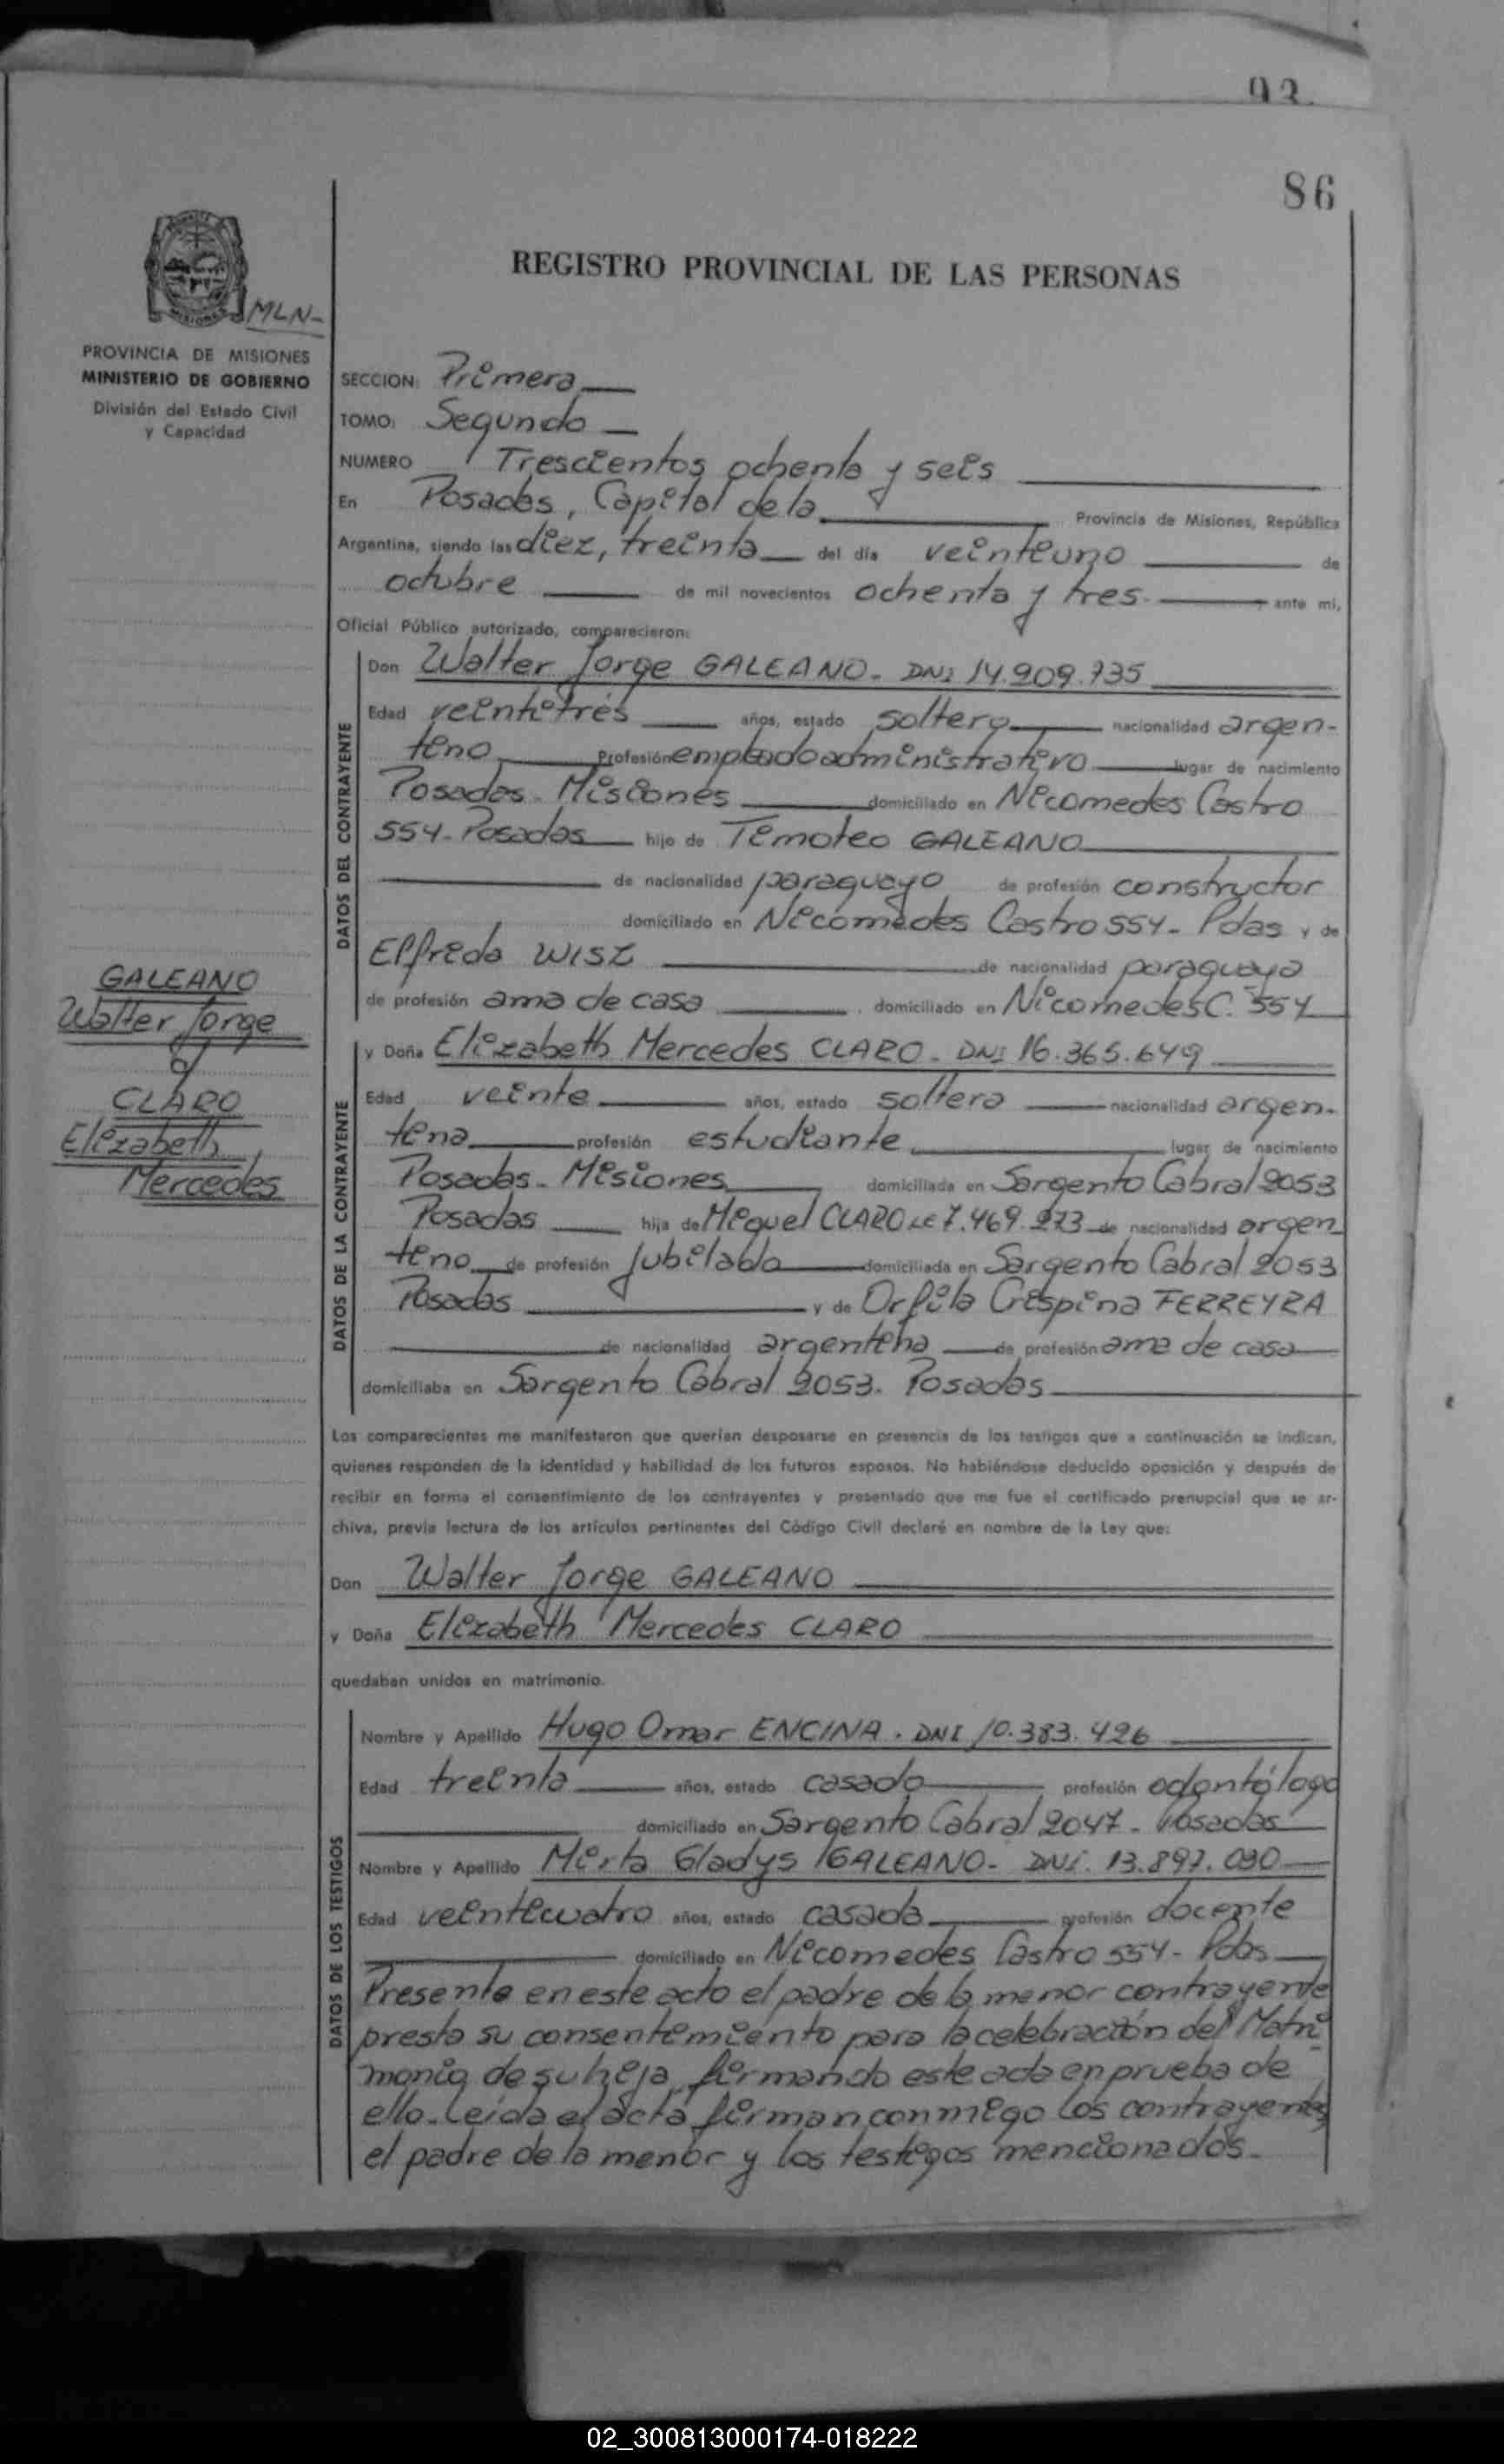 93.
86
REGISTRO PROVINCIAL DE LAS PERSONAS
MISIONES
MLN-
PROVINCIA DE MISIONES
MINISTERIO DE GOBIERNO
División del Estado Civil
y Capacidad
SECCION: Primera
TOMO: Segundo
NUMERO Trescientos ochenta y seis
En Posadas, Capital de la Provincia de Misiones, República
Argentina, siendo las diez, treinta del día veintiuno de
octubre de mil novecientos ochenta y tres. ante mi,
Oficial Público autorizado, comparecieron:
DATOS DEL CONTRAYENTE
Don Walter Jorge GALEANO. DNI 14.909.735
Edad veintitrés años, estado soltero nacionalidad argen-
tino Profesión empleado administrativo lugar de nacimiento
Posadas. Misiones domiciliado en Nicomedes Castro
554. Posadas hijo de Timoteo GALEANO
de nacionalidad paraguayo de profesión constructor
domiciliado en Nicomedes Castro 554. Pdas y de
Elfreda WISZ de nacionalidad paraguaya
de profesión ama de casa domiciliado en Nicomedes C. 554
GALEANO
Walter Jorge
y
CLARO
Elizabeth
Mercedes
DATOS DE LA CONTRAYENTE
y Doña Elizabeth Mercedes CLARO. DNI 16.365.649
Edad veinte años, estado soltera nacionalidad argen.
tina profesión estudiante lugar de nacimiento
Posadas. Misiones domiciliada en Sargento Cabral 2053
Posadas hija de Miguel CLARO LE 7.469.273 de nacionalidad argen
tino de profesión jubilado domiciliada en Sargento Cabral 2053
Posadas y de Orfila Crispina FERREYRA
de nacionalidad argentina de profesión ama de casa
domiciliaba en Sargento Cabral 2053. Posadas
Los comparecientes me manifestaron que querían desposarse en presencia de los testigos que a continuación se indican,
quienes responden de la identidad y habilidad de los futuros esposos. No habiéndose deducido oposición y después de
recibir en forma el consentimiento de los contrayentes y presentado que me fue el certificado prenupcial que se ar-
chiva, previa lectura de los artículos pertinentes del Código Civil declaré en nombre de la Ley que:
Don Walter Jorge GALEANO
y Doña Elizabeth Mercedes CLARO
quedaban unidos en matrimonio.
DATOS DE LOS TESTIGOS
Nombre y Apellido Hugo Omar ENCINA. DNI 10.383.426
Edad treinta años, estado casado profesión odontólogo
domiciliado en Sargento Cabral 2047. Posadas
Nombre y Apellido Mirta Gladys GALEANO. DNI. 13.897.030
Edad veinticuatro años, estado casada profesión docente
domiciliado en Nicomedes Castro 554. Pdas
Presente en este acto el padre de la menor contrayente
presta su consentimiento para la celebración del Matri-
monio de su hija, firmando este acta en prueba de
ello. Leída el acta firman conmigo los contrayentes
el padre de la menor y los testigos mencionados.
02_300813000174-018222